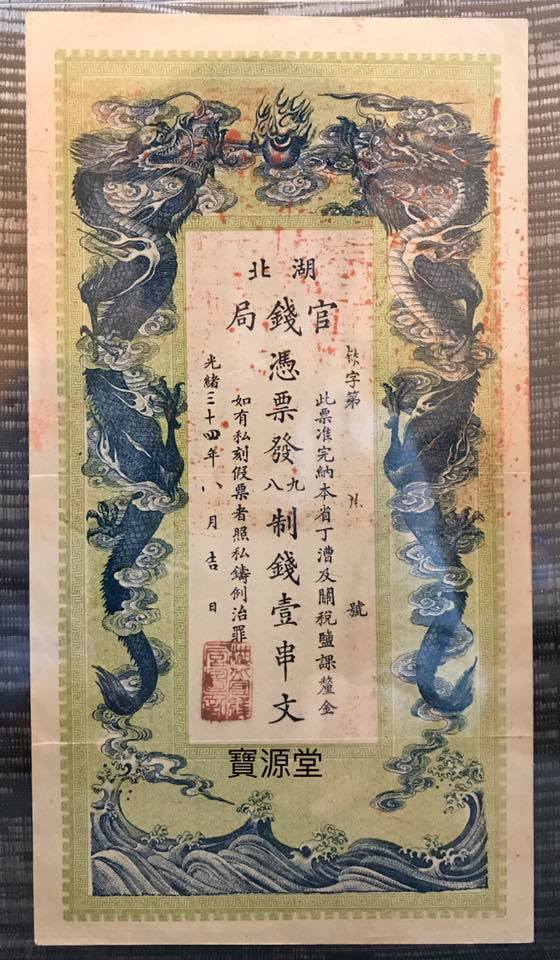 湖北
官錢局
字第　號
此票准完納本省丁漕及關稅鹽課釐金
憑票發九八制錢壹串文
如有私刻假票者照私鑄例治罪
光緒三十四年八月吉日
寶源堂